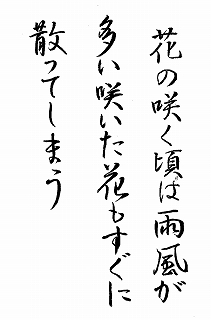 花の咲く頃は雨風が
多い咲いた花もすぐに
散ってしまう